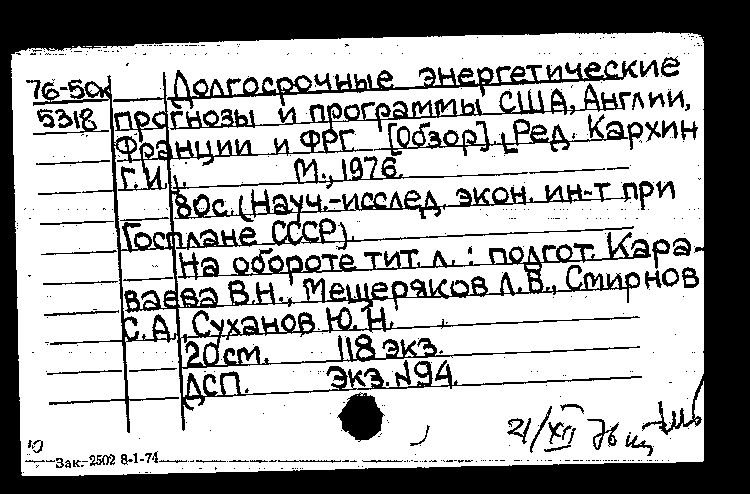 76-50к Долгосрочные энергетические
5318 прогнозы и программы США, Англии,
Франции и ФРГ. [Обзор]. [Ред. Кархин
Г.И.]. М., 1976.
80с. (Науч.-исслед. экон. ин-т при
Госплане СССР).
На обороте тит. л.: подгот. Кара-
ваева В.Н., Мещеряков Л.В., Смирнов
С.А., Суханов Ю.Н.
20см. 118 экз.
ДСП. Экз. N94.
21/XII 76
10
Зак. 2502 8-1-74